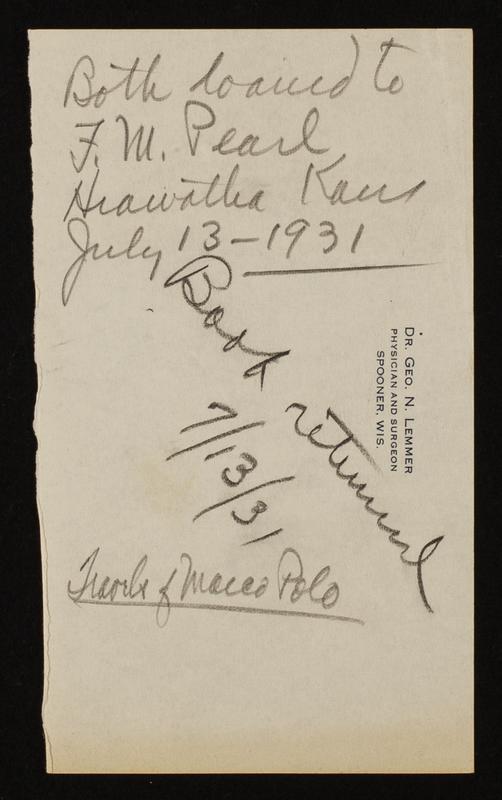 Both loaned to
F. M. Pearl
Hiawatha Kans
July 13-1931
Book returned
7/13/31
DR. GEO. N. LEMMER
PHYSICIAN AND SURGEON
SPOONER, WIS.
Travels of Marco Polo